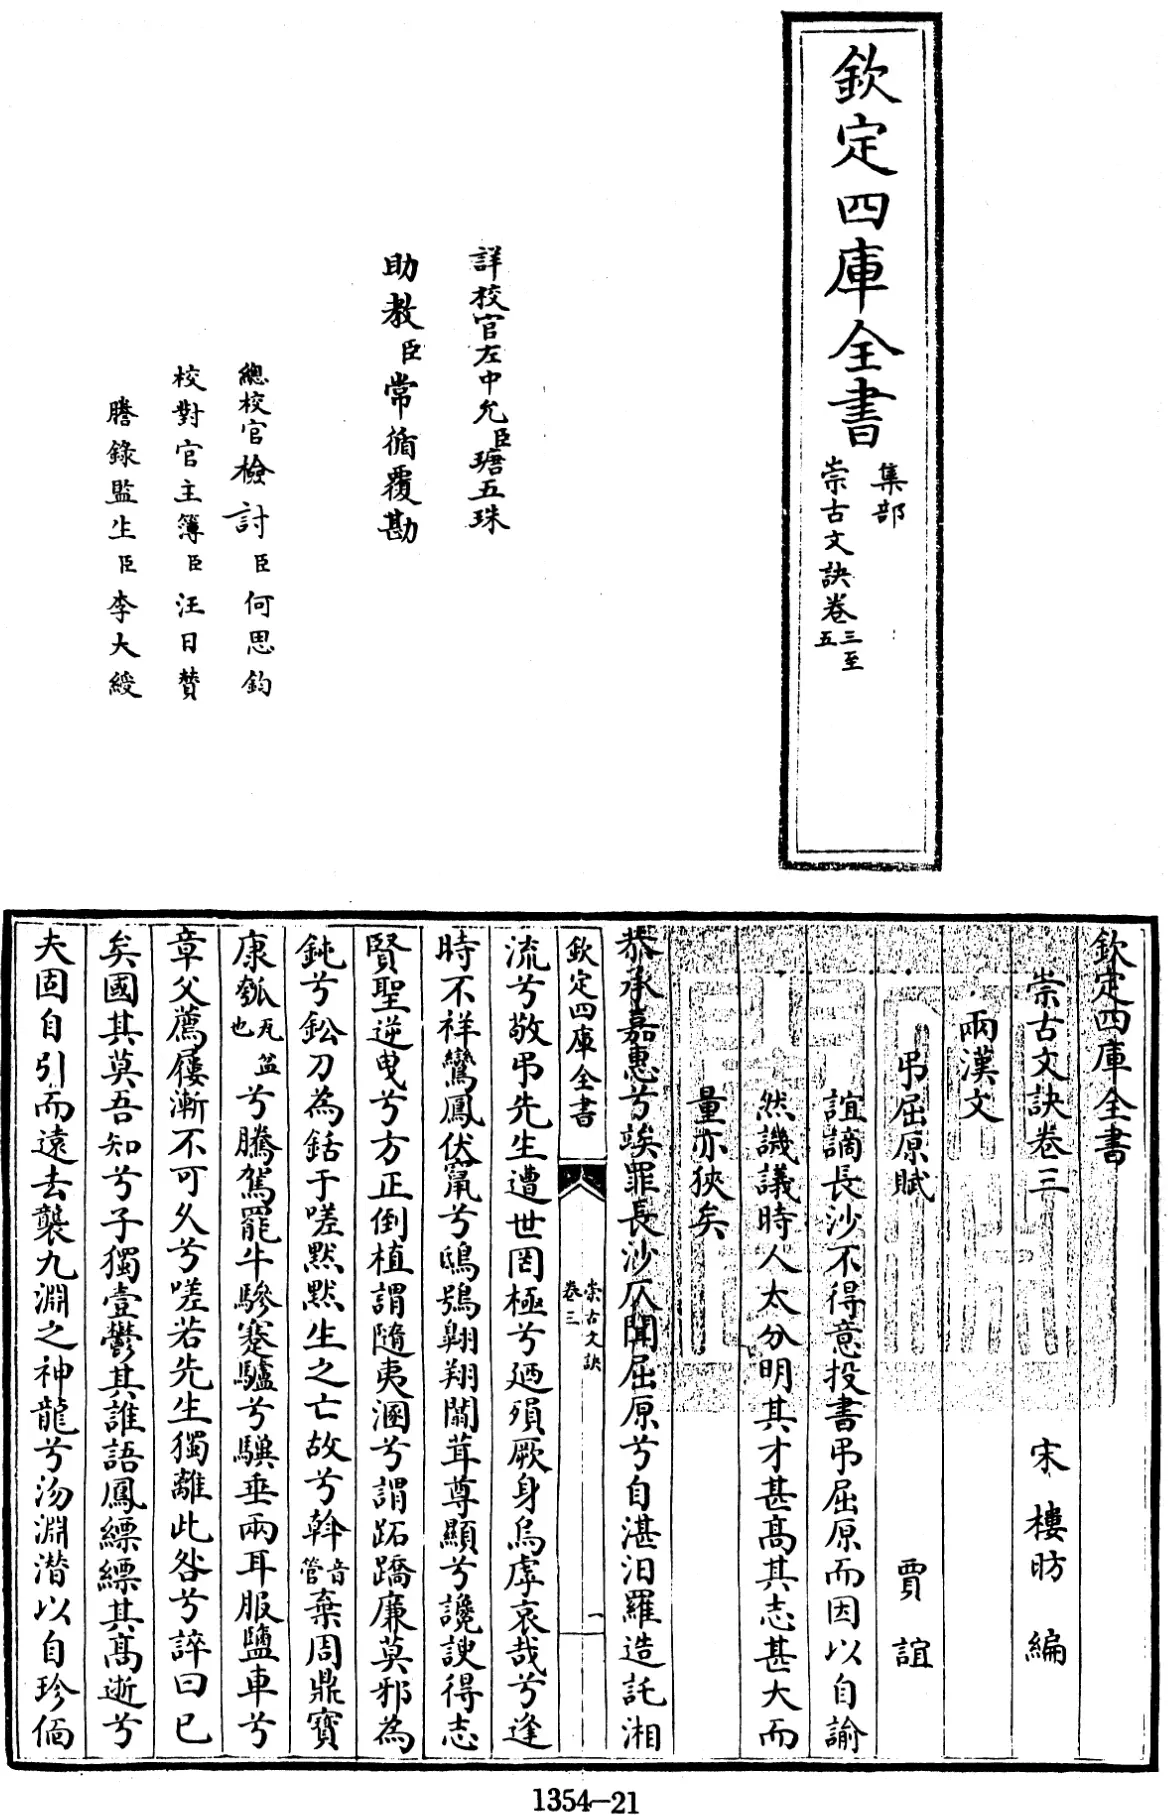 欽定四庫全書
集部
崇古文訣卷三至五
詳校官左中允臣瑭五珠
助教臣常循覆勘
總校官檢討臣何思鈞
校對官主簿臣汪日贊
謄錄監生臣李大綬
欽定四庫全書
崇古文訣卷三 宋 樓昉 編
兩漢文
弔屈原賦 賈誼
誼謫長沙不得意投書弔屈原而因以自諭
然譏議時人太分明其才甚高其志甚大而
量亦狹矣
恭承嘉惠兮竢罪長沙仄聞屈原兮自湛汨羅造託湘
欽定四庫全書 崇古文訣 卷三 一
流兮敬弔先生遭世罔極兮迺殞厥身烏虖哀哉兮逢
時不祥鸞鳳伏竄兮鴟鴞翺翔闒茸尊顯兮讒諛得志
賢聖逆曳兮方正倒植謂隨夷溷兮謂跖蹻廉莫邪為
鈍兮鈆刀為銛于嗟默默生之亡故兮斡音管棄周鼎寶
康瓠瓦盆也兮騰駕罷牛驂蹇驢兮驥垂兩耳服鹽車兮
章父薦屨漸不可久兮嗟若先生獨離此咎兮誶曰已
矣國其莫吾知兮子獨壹鬱其誰語鳳縹縹其髙逝兮
夫固自引而遠去襲九淵之神龍兮沕淵潛以自珍偭
1354—21